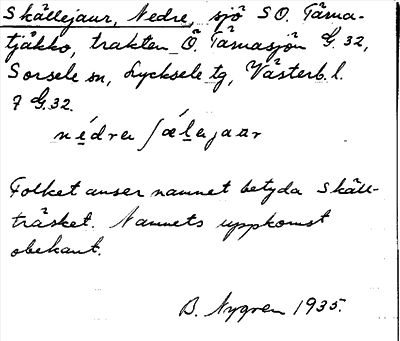 Skällejaur, Nedre, sjö SO. Tärna-
tjåkko, trakten Ö. Tärnasjön G. 32,
Sorsele sn, Lycksele tg, Västerb. l.
7 G. 32.
nédra ʃǽlajaur
Folket anser namnet betyda Skäll-
träsket. Namnets uppkomst
obekant.
B. Nygren 1935.